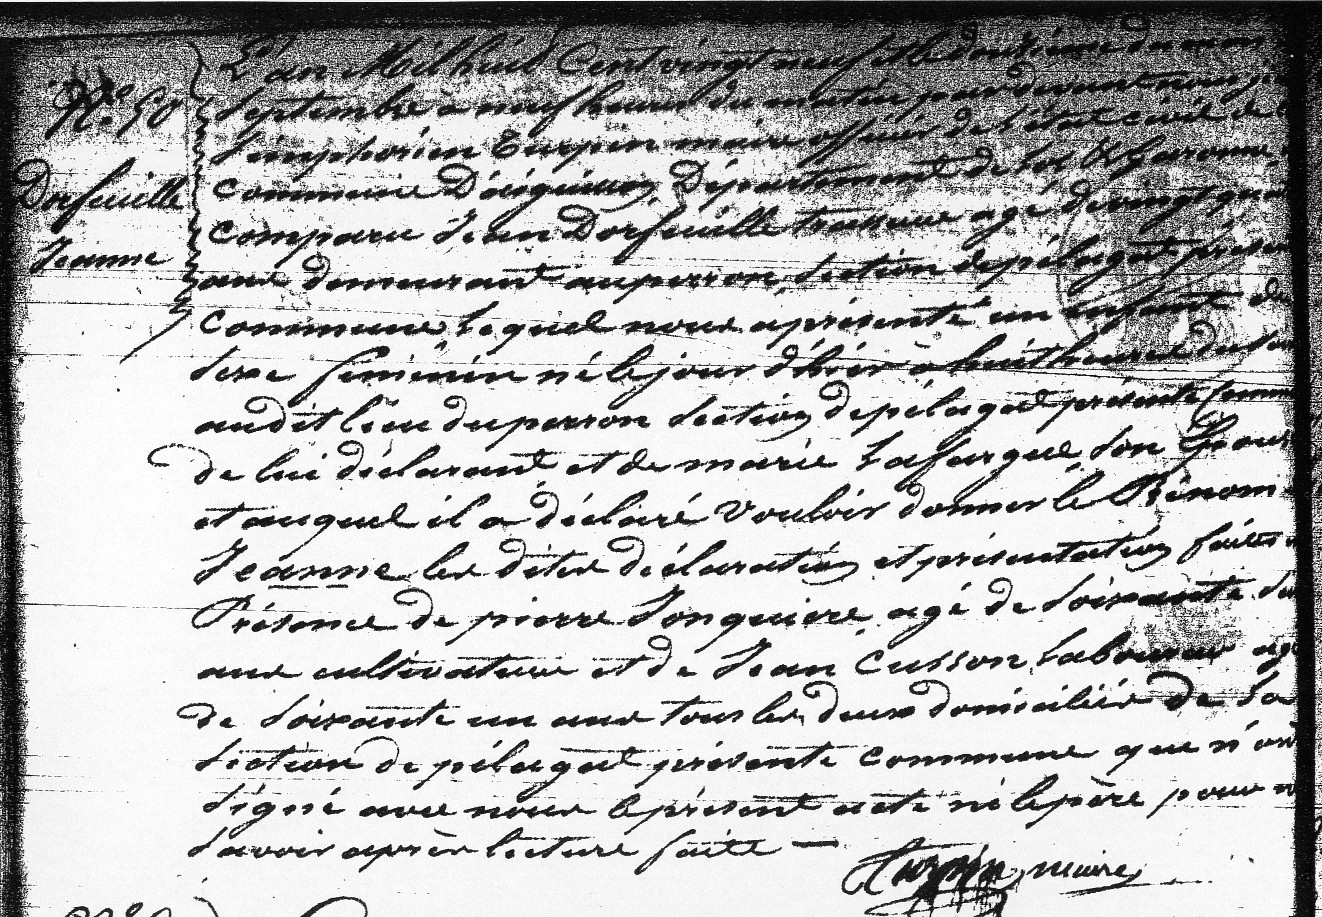 L'an Mil huit Cent vingt neuf et le douzième du mois
N.o 50
Septembre à neuf heures du matin par devant nous
Simphorien Turpin maire officier de l'état civil de
Dorfeuille
commune D'aiguillon, Département de Lot & Garonne,
Jeanne
comparu Jean Dorfeuille agé de vingt
ans demeurant auperron, section de pélagat présen
commune Lequel nous a présenté un enfant du
sexe féminin né le jour d'hier à huit heures du soir
audit lieu duperron section de pélagat présente Comm
de lui déclarant et de marie Lafargue son Epouse
et auquel il a déclaré vouloir donner le Prénom
Jeanne les dites déclaration et présentation faites
Présence de pierre Jonquiere, agé de soixante
ans cultivateur et de Jean Cusson Laboureur agé
de soixante un ans tous les deux domiciliés de la
section de pélagat présente commune que n'ont
signé avec nous le présent acte ni le père pour n
savoir après lecture faite —
Turpin, maire